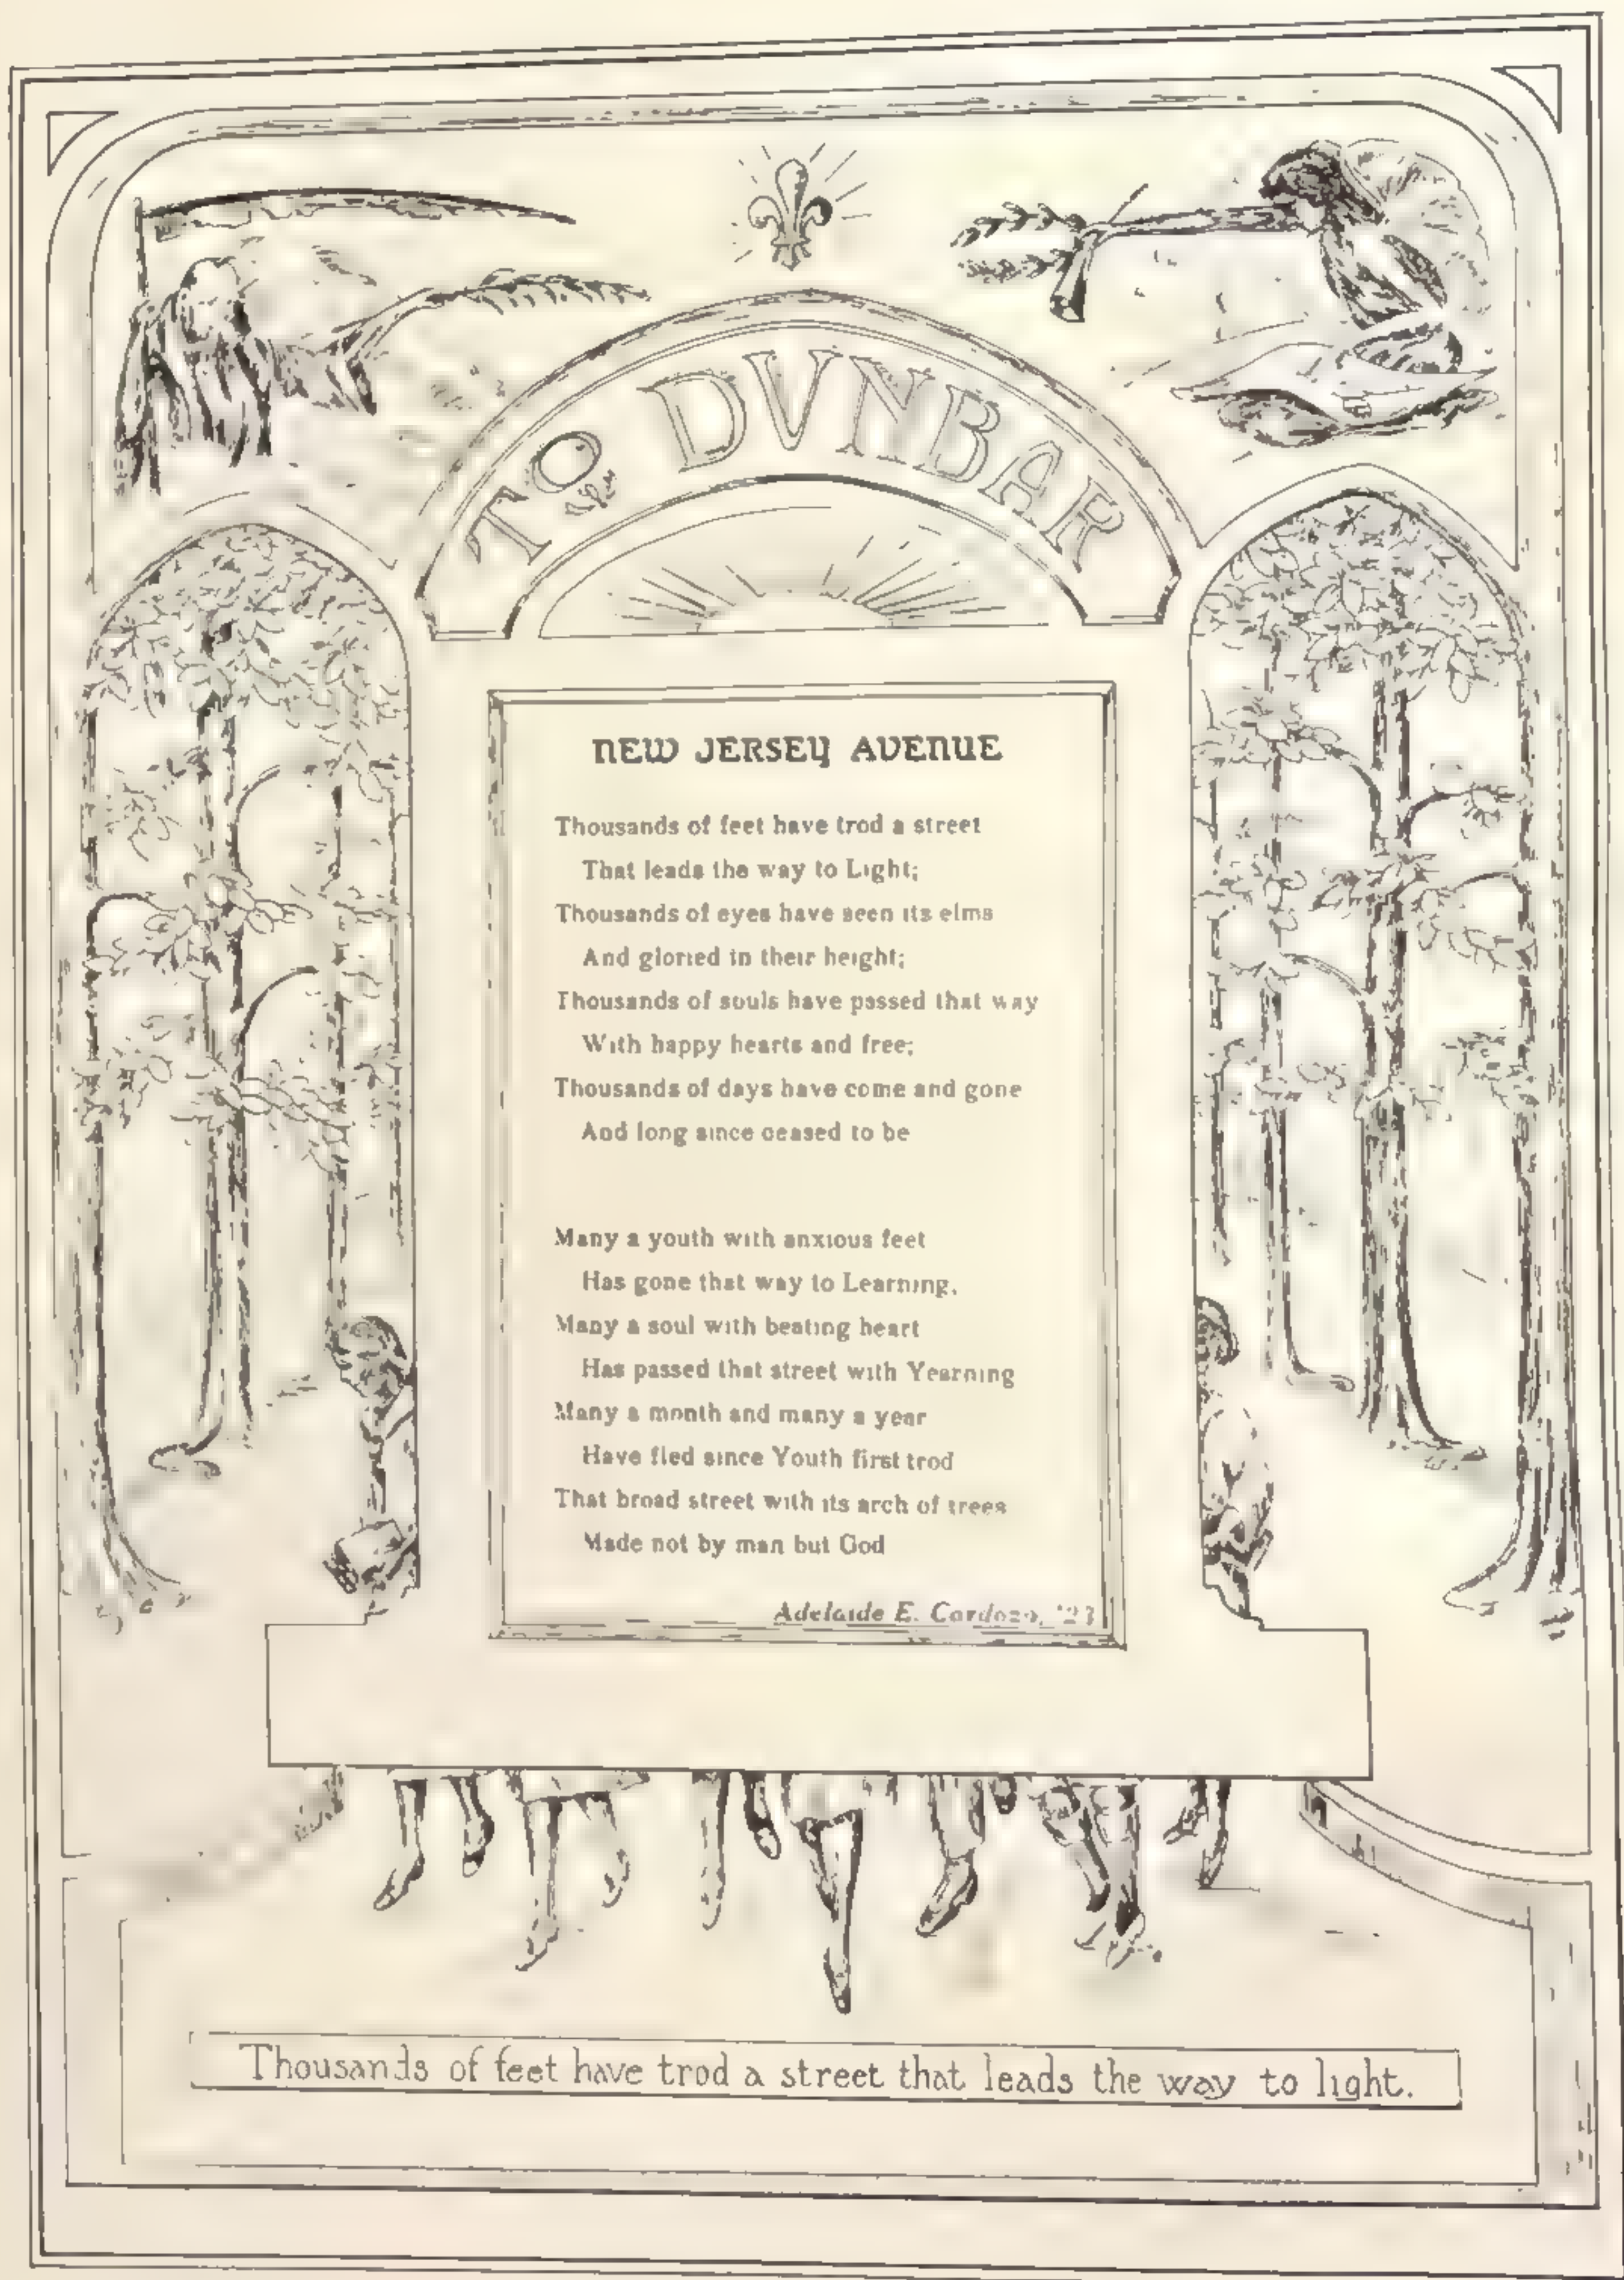 TO DVNBAR
NEW JERSEY AVENUE
Thousands of feet have trod a street
That leads the way to Light;
Thousands of eyes have seen its elms
And gloried in their height;
Thousands of souls have passed that way
With happy hearts and free;
Thousands of days have come and gone
And long since ceased to be
Many a youth with anxious feet
Has gone that way to Learning,
Many a soul with beating heart
Has passed that street with Yearning
Many a month and many a year
Have fled since Youth first trod
That broad street with its arch of trees
Made not by man but God
Adelaide E. Cardozo, '23
Thousands of feet have trod a street that leads the way to light.